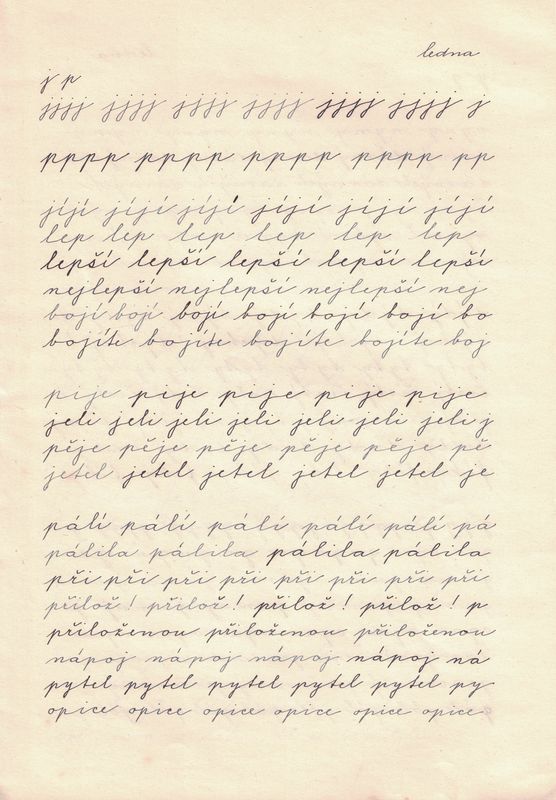 ledna
j p
jjjj jjjj jjjj jjjj jjjj jjjj j
pppp pppp pppp pppp pp
jíjí jíjí jíjí jíjí jíjí jíjí
lep lep lep lep lep lep
lepší lepší lepší lepší lepší
nejlepší nejlepší nejlepší nej
bojí bojí bojí bojí bojí bojí bo
bojíte bojíte bojíte bojíte boj
pije pije pije pije pije
jeli jeli jeli jeli jeli jeli jeli j
pěje pěje pěje pěje pěje pě
jetel jetel jetel jetel jetel je
pálí pálí pálí pálí pálí pá
pálila pálila pálila pálila
při při při při při při při při
přilož! přilož! přilož! přilož! p
přiloženou přiloženou přiloženou
nápoj nápoj nápoj nápoj ná
pytel pytel pytel pytel pytel py
opice opice opice opice opice opice